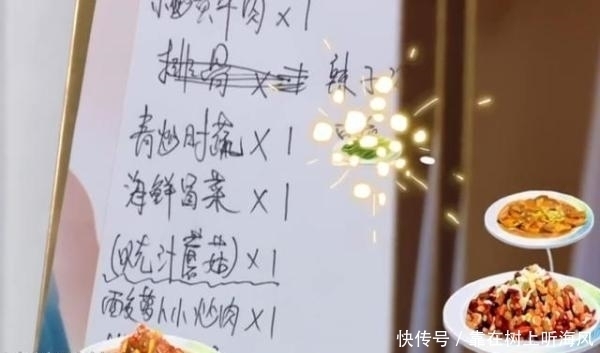 黄牛肉 x 1
排骨 x 辣子
青炒时蔬 x 1
海鲜冒菜 x 1
(吮汁蘑菇) x 1
酸萝卜小炒肉 x 1
快传号 / 靠在树上听海风